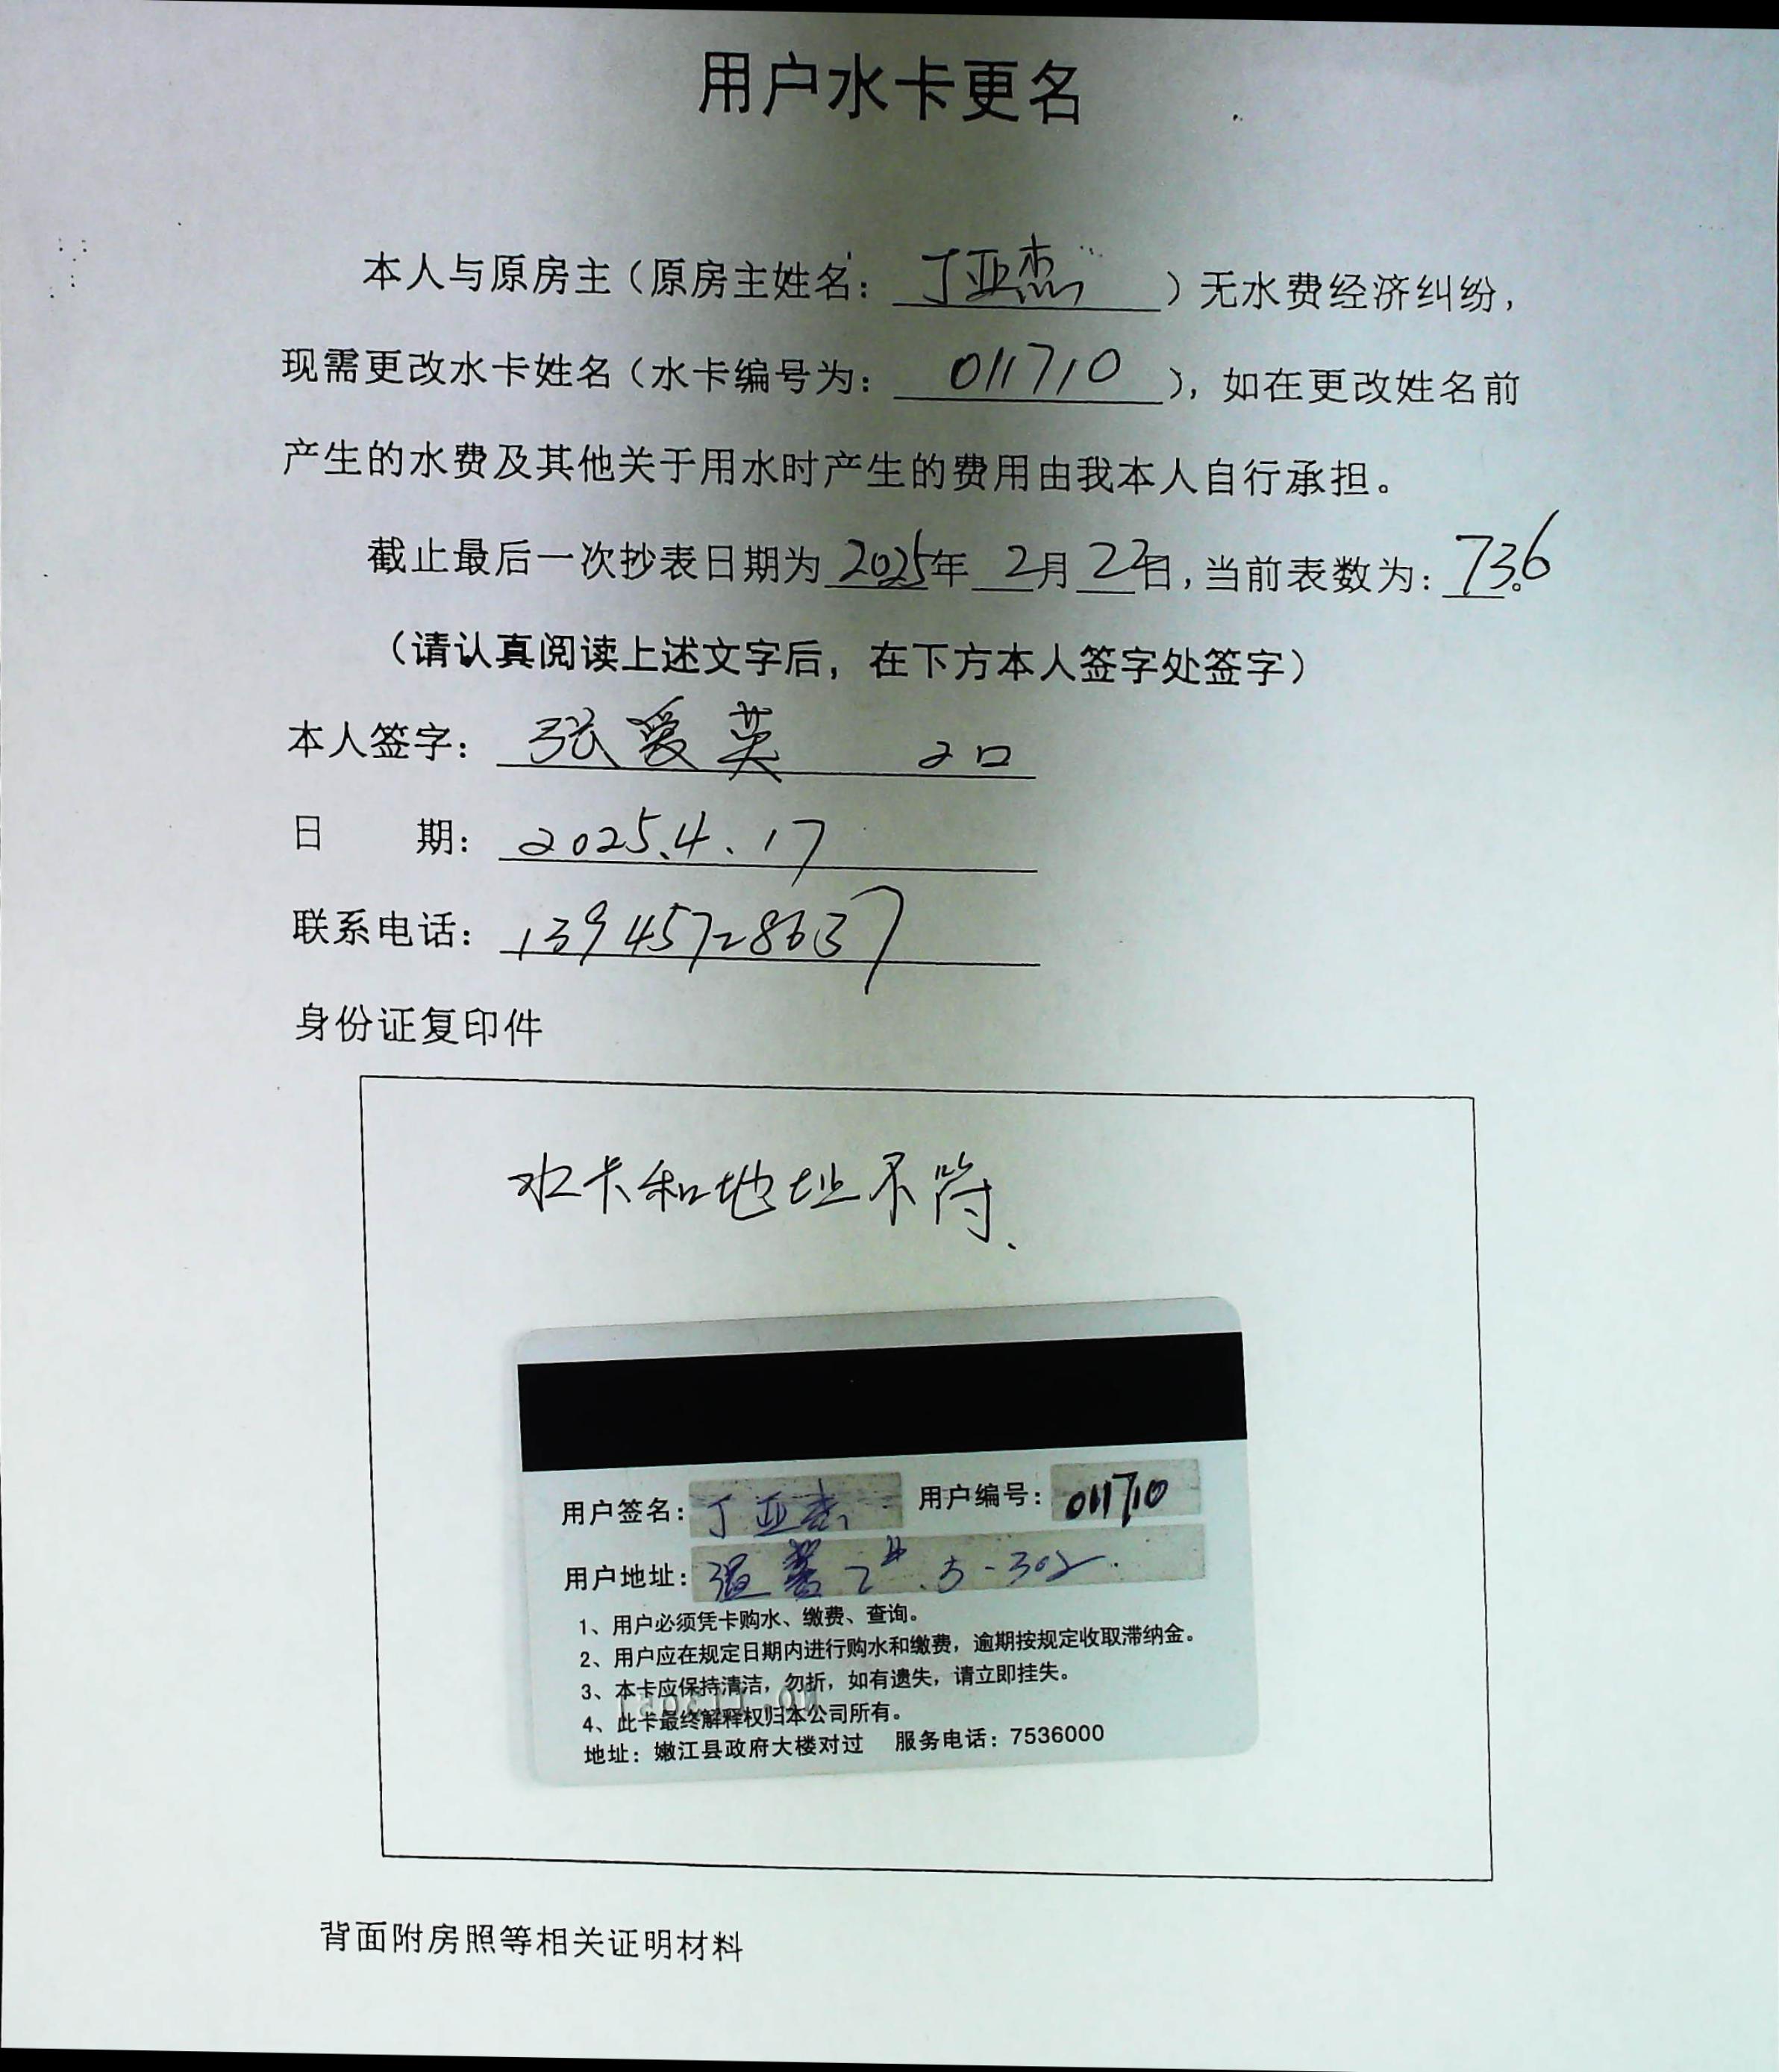 用户水卡更名
本人与原房主（原房主姓名：丁亚杰）无水费经济纠纷，
现需更改水卡姓名（水卡编号为：011710），如在更改姓名前
产生的水费及其他关于用水时产生的费用由我本人自行承担。
截止最后一次抄表日期为2025年2月22日，当前表数为：736。
（请认真阅读上述文字后，在下方本人签字处签字）
本人签字：张爱英 2口
日 期：2025.4.17
联系电话：13945728637
身份证复印件
水卡和地址不符.
用户签名：丁亚杰 用户编号：011710
用户地址：2# 5-302.
1、用户必须凭卡购水、缴费、查询。
2、用户应在规定日期内进行购水和缴费，逾期按规定收取滞纳金。
3、本卡应保持清洁，勿折，如有遗失，请立即挂失。
4、此卡最终解释权归本公司所有。
地址：嫩江县政府大楼对过 服务电话：7536000
背面附房照等相关证明材料